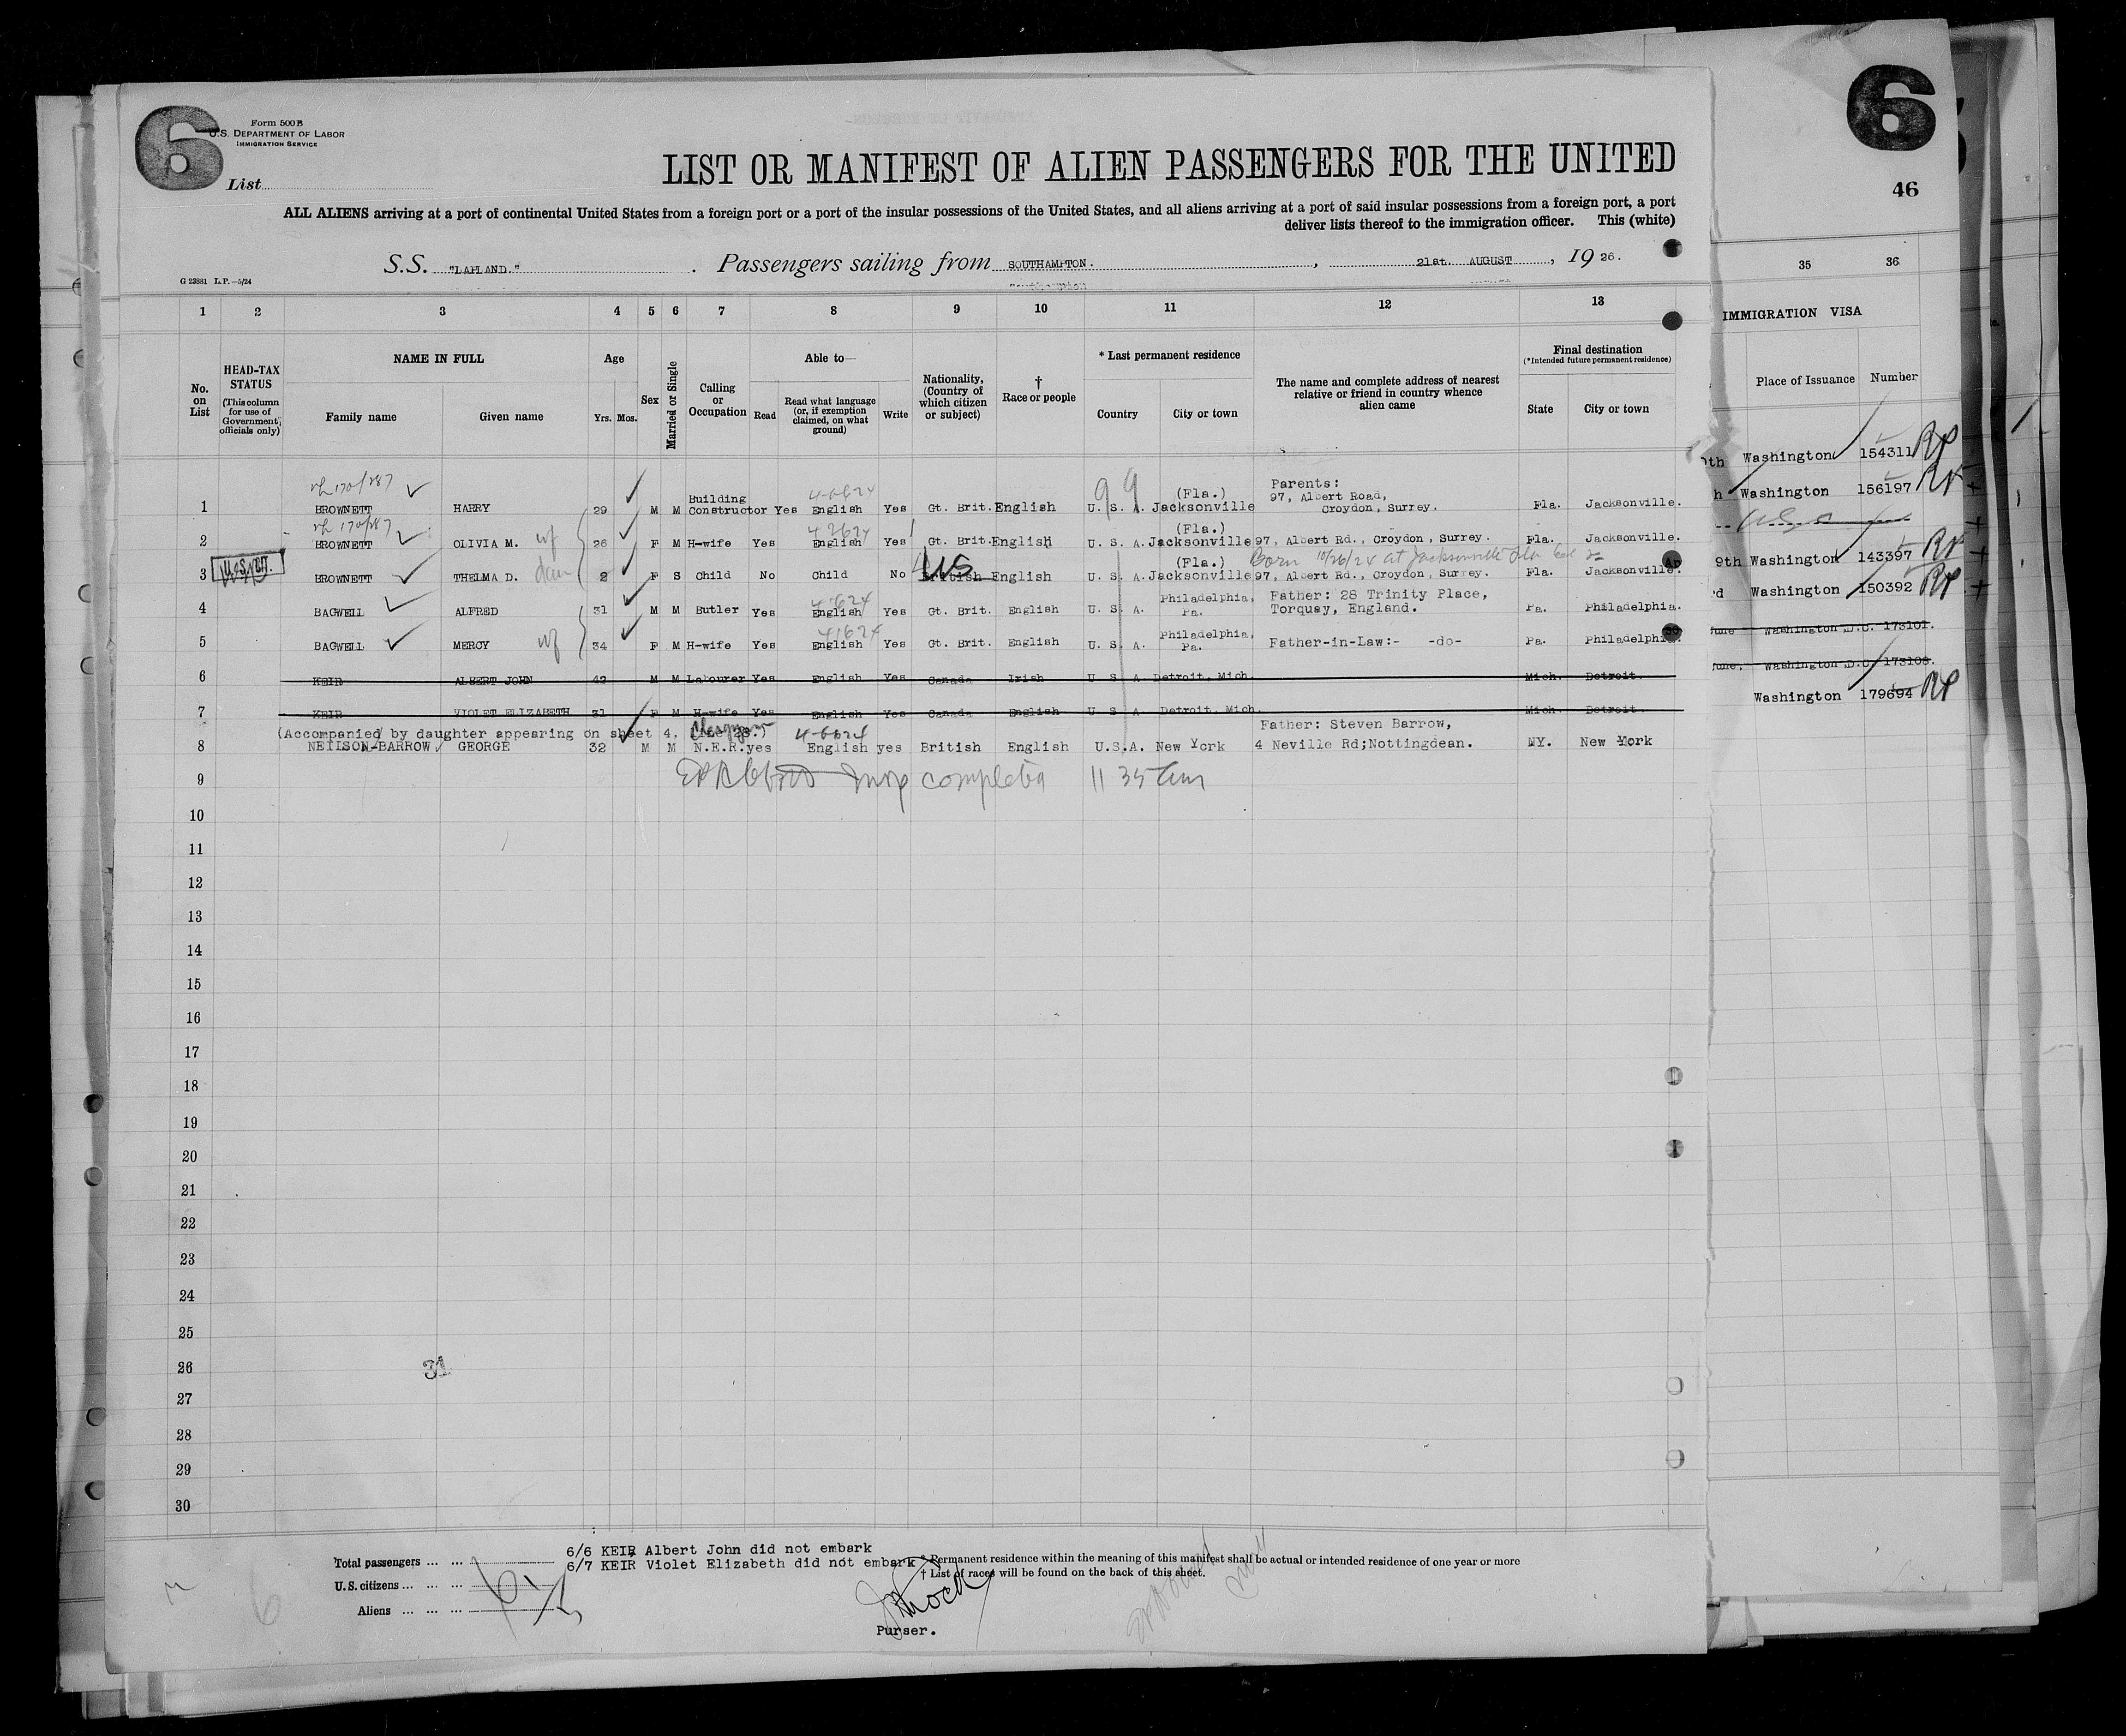 6
Form 500B
U.S. DEPARTMENT OF LABOR
IMMIGRATION SERVICE
List
LIST OR MANIFEST OF ALIEN PASSENGERS FOR THE UNITED
ALL ALIENS arriving at a port of continental United States from a foreign port or a port of the insular possessions of the United States, and all aliens arriving at a port of said insular possessions from a foreign port, a port
deliver lists thereof to the immigration officer. This (white)
S.S. "LAPLAND." Passengers sailing from SOUTHAMPTON. , 21st. AUGUST , 19 26.
G 23881 L.P.—5/24
1 2 3 4 5 6 7 8 9 10 11 12 13
No. on List
HEAD-TAX STATUS (This column for use of Government officials only)
NAME IN FULL
Family name Given name
Age
Yrs. Mos.
Sex
Married or Single
Calling or Occupation
Able to—
Read Read what language (or, if exemption claimed, on what ground) Write
Nationality, (Country of which citizen or subject)
† Race or people
* Last permanent residence
Country City or town
The name and complete address of nearest relative or friend in country whence alien came
Final destination
(*Intended future permanent residence)
State City or town
1 BROWNETT HARRY 29 M M Building Constructor Yes English Yes Gt. Brit. English U. S. A. (Fla.) Jacksonville Parents: 97, Albert Road, Croydon, Surrey. Fla. Jacksonville.
2 BROWNETT OLIVIA M. wf 26 F M H-wife Yes English Yes Gt. Brit. English U. S. A. (Fla.) Jacksonville 97, Albert Rd., Croydon, Surrey. Fla. Jacksonville.
Born 10/26/24 at Jacksonville Fla
3 BROWNETT THELMA D. dau 2 F S Child No Child No British US English U. S. A. (Fla.) Jacksonville 97, Albert Rd., Croydon, Surrey. Fla. Jacksonville.
4 BAGWELL ALFRED 31 M M Butler Yes English Yes Gt. Brit. English U. S. A. Philadelphia, Pa. Father: 28 Trinity Place, Torquay, England. Pa. Philadelphia.
5 BAGWELL MERCY wf 34 F M H-wife Yes English Yes Gt. Brit. English U. S. A. Philadelphia, Pa. Father-in-Law:- -do- Pa. Philadelphia.
6 KEIR ALBERT JOHN 42 M M Labourer Yes English Yes Canada Irish U S A Detroit, Mich. Mich. Detroit.
7 KEIR VIOLET ELIZABETH 31 F M H-wife Yes English Yes Canada English U S A Detroit, Mich. Mich. Detroit.
(Accompanied by daughter appearing on sheet 4, line 28.) Clergyman
8 NEILSON-BARROW GEORGE 32 M M N.E.R. yes English yes British English U.S.A. New York Father: Steven Barrow, 4 Neville Rd; Nottingdean. NY. New York
9 completed 11 35 am
10
11
12
13
14
15
16
17
18
19
20
21
22
23
24
25
26
31
27
28
29
30
Total passengers ... ...
U.S. citizens ... ... ...
Aliens ... ... ...
6/6 KEIR Albert John did not embark
6/7 KEIR Violet Elizabeth did not embark
* Permanent residence within the meaning of this manifest shall be actual or intended residence of one year or more
† List of races will be found on the back of this sheet.
Purser.
6
46
35 36
IMMIGRATION VISA
Place of Issuance Number
Washington 154311
Washington 156197
9th Washington 143397
Washington 150392
June Washington D.C. 173101.
June, Washington D.C. 173108.
Washington 179694